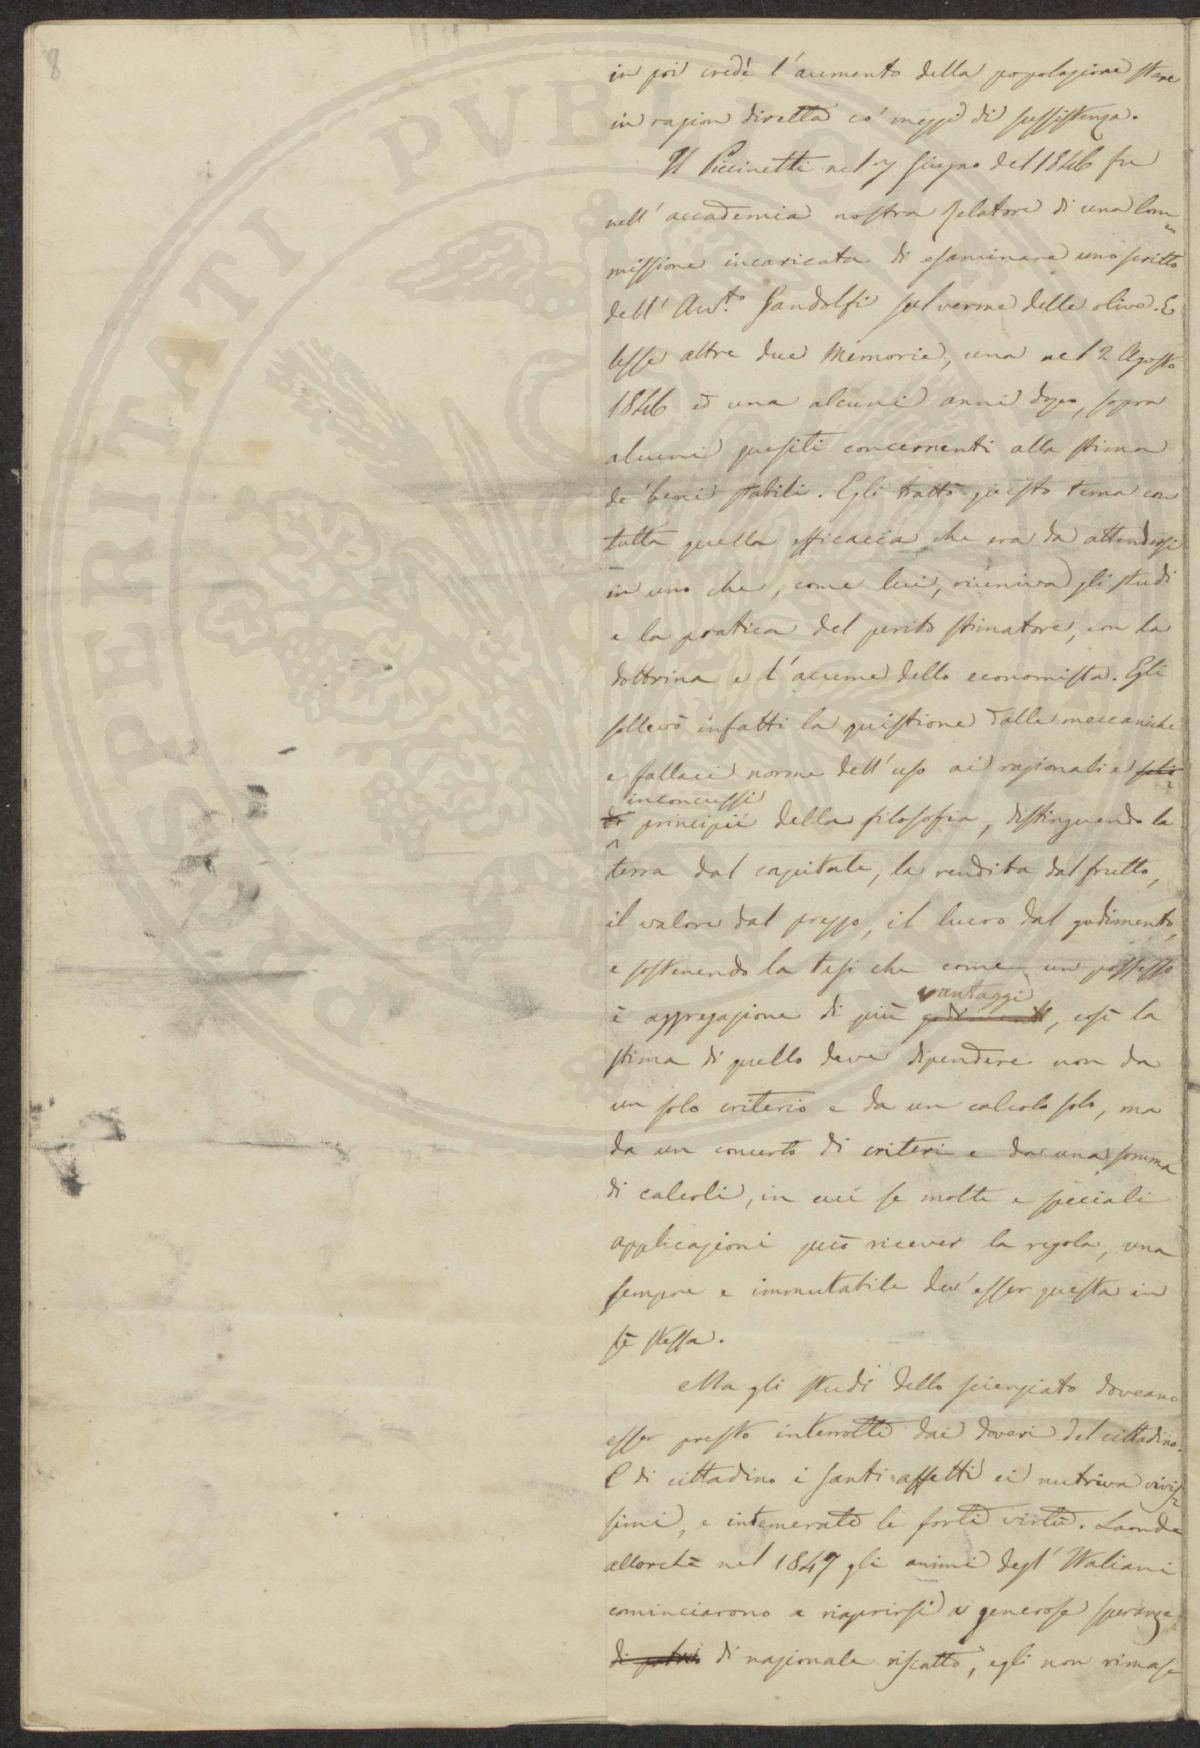 8
in poi credè l'aumento della popolazione stare
in ragion diretta co' mezzi di sussistenza.
Il Piccinetti nel 7 Giugno del 1846 fu
nell' accademia nostra Relatore di una Com=
missione incaricata di esaminare uno scritto
dell' Avv.to Gandolfi sul verme delle olive. E
lesse altre due Memorie, una nel 2 Agosto
1846 ed una alcuni anni dopo, sopra
alcuni quesiti concernenti alla stima
de' beni stabili. Egli trattò questo tema con
tutta quella efficacia che era da attendersi
in uno che, come lui, riuniva gli studi
e la pratica del perito stimatore, con la
dottrina e l'acume dello economista. Egli
sollevò infatti la quistione dalle meccaniche
e fallaci norme dell' uso ai razionali e soli=
inconcussi
di principii della filosofia, distinguendo la
terra dal capitale, la rendita dal frutto,
il valore dal prezzo, il lucro dal godimento,
e sostenendo la tesi che come un possesso
vantaggi
è aggregazione di più godimenti, così la
stima di quello deve dipendere non da
un solo criterio e da un calcolo solo, ma
da un concerto di criteri e da una somma
di calcoli, in cui se molte e speciali
applicazioni può ricever la regola, una
sempre e immutabile dev' esser questa in
sè stessa.
Ma gli studi dello scienziato doveano
esser presto interrotti dai doveri del cittadino.
E di cittadino i santi affetti ei nutriva vivis=
simi, e intemerate le forti virtù. Laonde
allorchè nel 1847 gli animi degl' Italiani
cominciarono a riaprirsi a generose speranze
di patrio di nazionale riscatto, egli non rimase
PROSPERITATI PVBLICAE